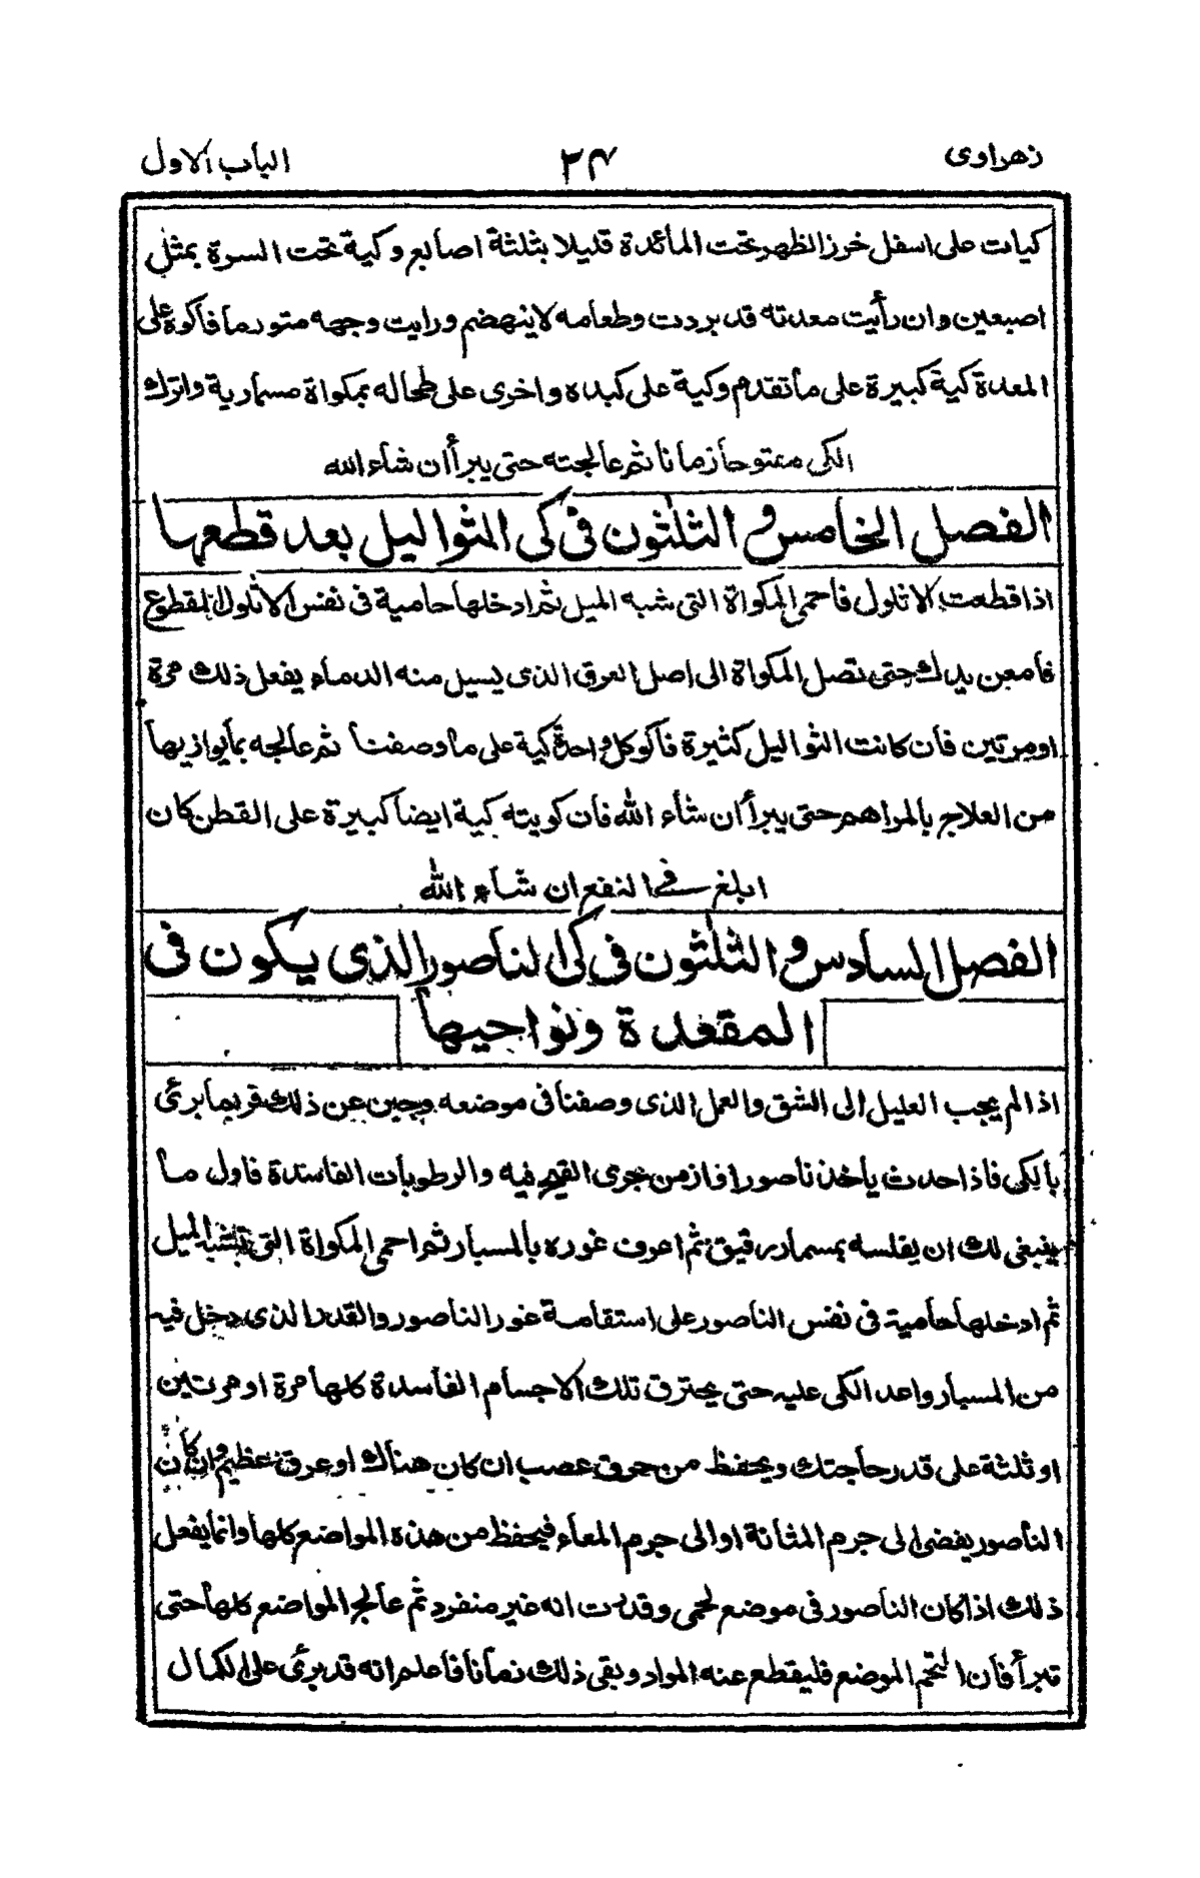 زهراوی
۲۴
الباب الاول
كيات على اسفل خرز الظهر تحت المأئدة قليلا بثلثة اصأبع وكية تحت السرة بمثل
اصبعين وان رأيت معدته قد بردت وطعامه لا ينهضم ورايت وجهه متورمأ فأكوة على
المعدة كية كبيرة على مأ تقدم وكية على كبده واخرى على طحأله بمكواة مسمأرية واترك
الكى مفتوحأ زمأنا ثم عألجته حتى يبرأ ان شأء الله
الفصل الخأمس و الثلثون فى كى الثواليل بعد قطعهأ
اذا قطعت الاثلول فأحمى المكواة التى شبه الميل ثم ادخلهأ حأمية فى نفس الاثلول المقطوع
فأمعن يدك حتى تصل المكواة الى اصل العرق الذى يسيل منه الدمأء يفعل ذلك مرة
او مرتين فأن كانت الثواليل كثيرة فأكو كل واحدة كية على مأ وصفنأ ثم عألجه بمأ يوازيهأ
من العلاج بألمراهم حتى يبرأ ان شأء الله فأن كويته كية ايضأ كبيرة على القطن كان
ابلغ فى النفع ان شأء الله
الفصل السأدس و الثلثون فى كى النأصور الذى يكون فى
المقعدة ونواحيهأ
اذا لم يجب العليل الى الشق والعمل الذى وصفنأ فى موضعه وجبن عن ذلك فربمأ برئ
بألكى فأذا حدث يأخذ نأصور افاز من جرى القيح فيه والرطوبأت الفأسدة فأول مأ
ينبغى لك ان يقلسه بمسمأر رقيق ثم اعرف غوره بألمسبأر ثم احمى المكواة التى تشبه الميل
ثم ادخلهأ حأمية فى نفس النأصور على استقأمة غور النأصور والقدر الذى دخل فيه
من المسبأر واعد الكى عليه حتى يحترق تلك الاجسأم الفأسدة كلهأ مرة او مرتين
او ثلثة على قدر حأجتك ويحفظ من حرق عصب ان كان هنأك او عرق عظيم وان كأن
النأصور يفضى الى جرم المثأنة او الى جرم المعأء فيحفظ من هذه المواضع كلهأ وانمأ يفعل
ذلك اذا كان النأصور فى موضع لحمى وقدرت انه غير منفرد ثم عألج المواضع كلهأ حتى
تبرأ فأن التحم الموضع فليقطع عنه المواد وبقى ذلك زمأنأ فأعلم انه قد برئ على الكمأل